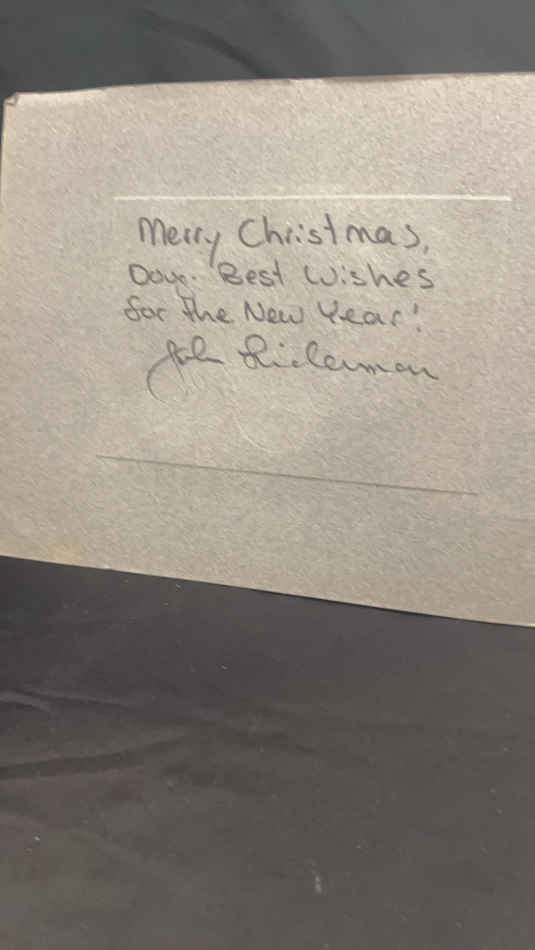 Merry Christmas,
Doug. Best Wishes
for the New Year!
John